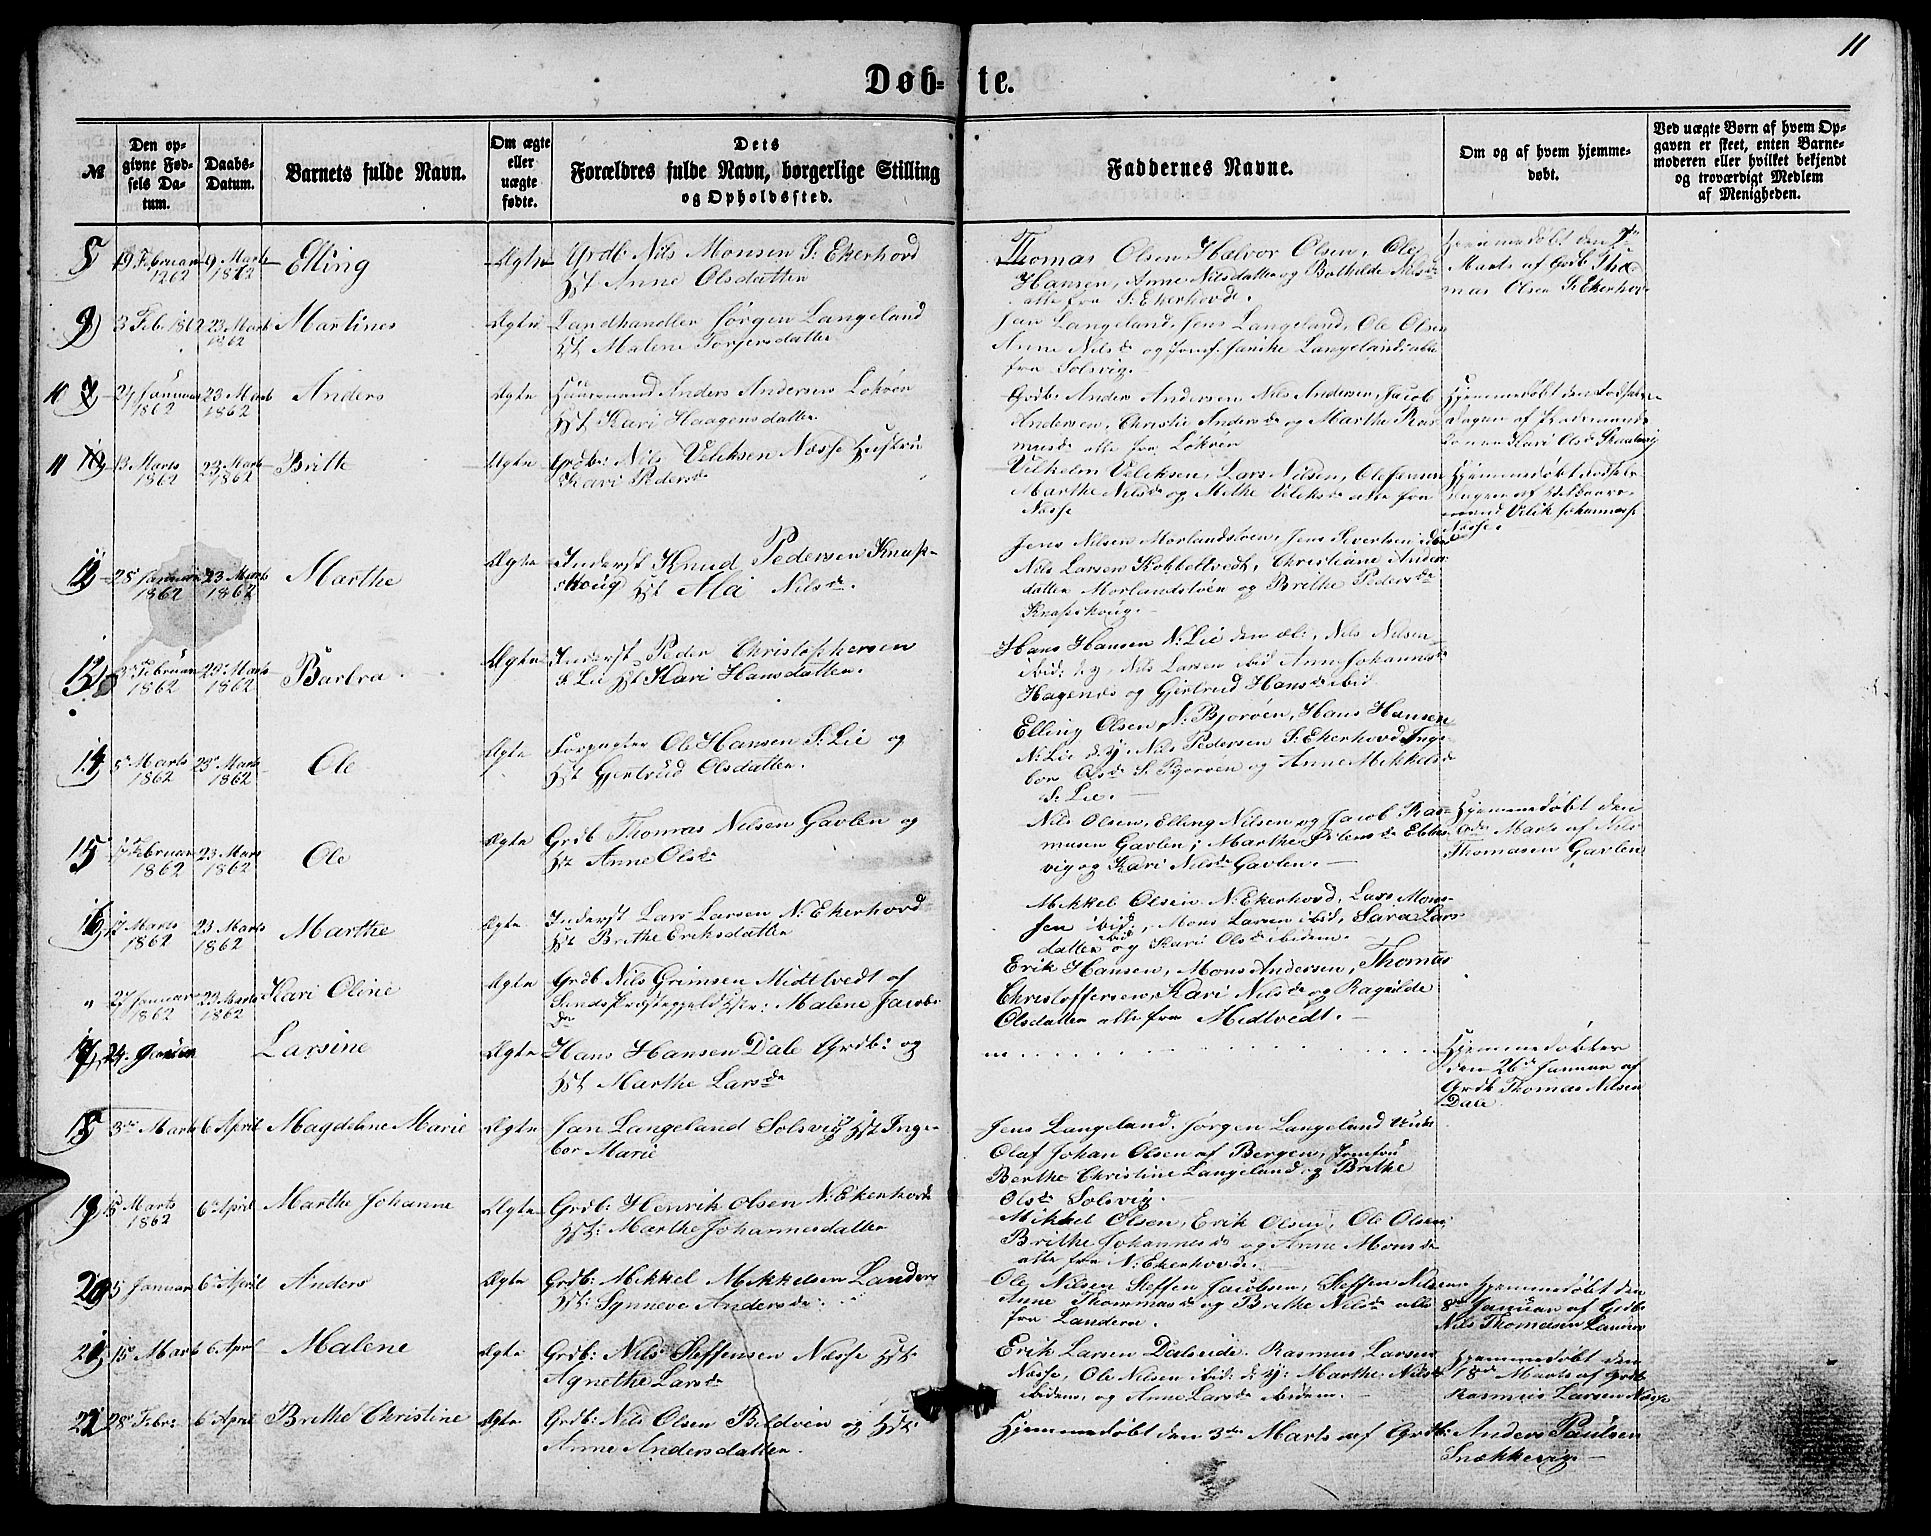 11
Døb- te.
№
Den op-
givne Fød-
sels Da-
tum.
Daabs-
Datum.
Barnets fulde Navn.
Om ægte
eller
uægte
fødte.
Dets
Forældres fulde Navn, borgerlige Stilling
og Opholdssted.
Faddernes Navne.
Om og af hvem hjemme-
døbt.
Ved uægte Børn af hvem Op-
gaven er skeet, enten Barne-
moderen eller hvilket bekjendt
og troværdigt Medlem
af Menigheden.
8
19 Februar
1862
9 Marts
1862
Elling
Ægte
Grdb: Nils Monsen S: Ekerhovd
Hst Anne Olsdatter
Thomas Olsen Halvor Olsen, Ole
Hansen, Anne Nilsdatter og Bothilde Nilsdr
alle fra S: Ekerhovd.
Hjemmedøbt den
Marts af Grdb. Tho-
mas Olsen S: Ekerhov
9
3 Feb 1862
23 Marts
1862
Martines
Ægte
Landhandler Jørgen Langeland
Hst Malene Torgersdatter
Jan Langeland, Jens Langeland, Ole Olsen
Anne Nilsdr og Jomf. Langeland alle
fra Solsvig.
10
24 Januar
1862
23 Marts
1862
Anders
Ægte
Huusmand Anders Andersen Løkøen
Hst Kari Haagensdatter
Grdb: Anders Andersen Nils Andersen, Jacob
Andersen, Christie Andersdr og Marthe Ras
musdr alle fra Løkøen
Hjemmedøbt den Fødsels-
dagen af
Kari Olsdr
11
13 Marts
1862
23 Marts
1862
Brithe
Ægte
Grdb: Nils Velıksen Næsse Hustru
Kari Pedersdr
Vilhelm Veliksen, Lars Nilsen, Ole Jensen
Marthe Nilsdr og Methe Veliksdr alle fra
Næsse
Hjemmedøbt Fødsels-
dagen af
Velik Johannesen
Næsse.
12
25 Januar
1862
23 Marts
1862
Marthe
Ægte
Inderst Knud Pedersen Knap-
skoug Hst Mai Nilsdr.
Jens Nilsen Morlandstøen, Jens Sivertsen ibid
Nils Larsen Kobbeltvedt, Christiane Anders
datter Morlandstøen og Brithe Pedersdr
Knapskoug.
13
3 Februar
1862
23 Marts
1862
Barbra
Ægte
Inderst Peder Christophersen
S: Lie Hst Kari Hansdatter.
Hans Hansen N: Lie den æl:, Nils Nilsen
ibid: d. y, Nils Larsen ibid Anne Johannesdr
Hagenæs og Gjertrud Hansdr ibid.
14
5 Marts
1862
23 Marts
1862
Ole
Ægte
Forpagter Ole Hansen S: Lie og
Hst Gjertrud Olsdatter.
Elling Olsen N: Bjorøen, Hans Hansen
N: Lie d. y. Nils Pedersen S: Ekerhovd Inge
bor Olsdr S: Bjorøen og Anne Mikkelsdr
S: Lie.
15
Februar
1862
23 Mars
1862
Ole
Ægte
Grdb Thomas Nilsen Gavlen og
Hst Anne Olsdr
Nils Olsen, Elling Nilsen og Jacob Ras-
musen Gavlen; Marthe Ebbes
vig og Kari Nilsdr Gavlen.
Hjemmedøbt den
Marts af Nils
Thomasen Gavlen
16
17 Marts
1862
23 Marts
1862
Marthe
Ægte
Inderst Lars Larsen N: Ekerhovd
Hst Brithe Eriksdatter
Mikkel Olsen N: Ekerhovd, Lars Mons-
sen ibid; Mons Larsen ibid, Sara Lars-
datter ibid og Kari Olsdr ibidem.
"
27 Januar
1862
23 Marts
1862
Kari Oline
Ægte
Grdb Nils Grimsen Midtvedt af
Sunds Præstegjeld Hst: Malene Jacobs
dr
Erik Hansen, Mons Andersen, Thomas
Christoffersen, Kari Nilsdr og Ragnilde
Olsdatter alle fra Midtvedt.
17
24. Januar
Larsine
Ægte
Hans Hansen Dale Grdb: og
Hst Marthe Larsdr
Hjemmedøbter
den 26de Januar af
Grdb Thomas Nilsen
Dale
18
3de Marts
6 April
Magdelene Marie
Ægte
Jan Langeland Solsvig Hst Inge-
bor Marie
Jens Langeland, Jørgen Langeland
Olaf Johan Olsen af Bergen, Jomfru
Berthe Christine Langeland og Brithe
Olsdr Solsvig.
19
15 Marts
1862
6 April
Marthe Johanne
Ægte
Grdb: Henrik Olsen N: Ekerhovd
Hst: Marthe Johannesdatter
Mikkel Olsen, Erik Olsen, Ole Olsen
Brithe Johannesdr og Anne Monsdr
alle fra N: Ekerhovd.
20
5 Januar
6 April
Anders
Ægte
Grdb: Mikkel Mikkelsen Landere
Hst: Synneve Andersdr.
Ole Nilsen Steffen Jacobsen, Steffen Nilsen
Anne Thommasdr og Brithe Nilsdr alle
fra Landera.
Hjemmedøbt den
8de Januar af Grdb
Nils Thomasen Landere
21
15 Marts
6 April
Malene
Ægte
Grdb: Nils Steffensen Næsse Hst:
Agnethe Larsdr
Erik Larsen Dalseide. Rasmus Larsen
Næsse, Ole Nilsen ibid: d. y: Marthe Nilsdr
ibidem, og Anne Larsdr ibidem.
Hjemmedøbt den
18de Marts af Grdb
Rasmus Larsen Næsse
22
28 Febr:
6 April
Brithe Christine
Ægte
Grdb: Nils Olsen Bildøen og Hst:
Anne Andersdatter.
Hjemmedøbt den 3de Marts af Grdb: Anders Paulsen
Snækkevig.